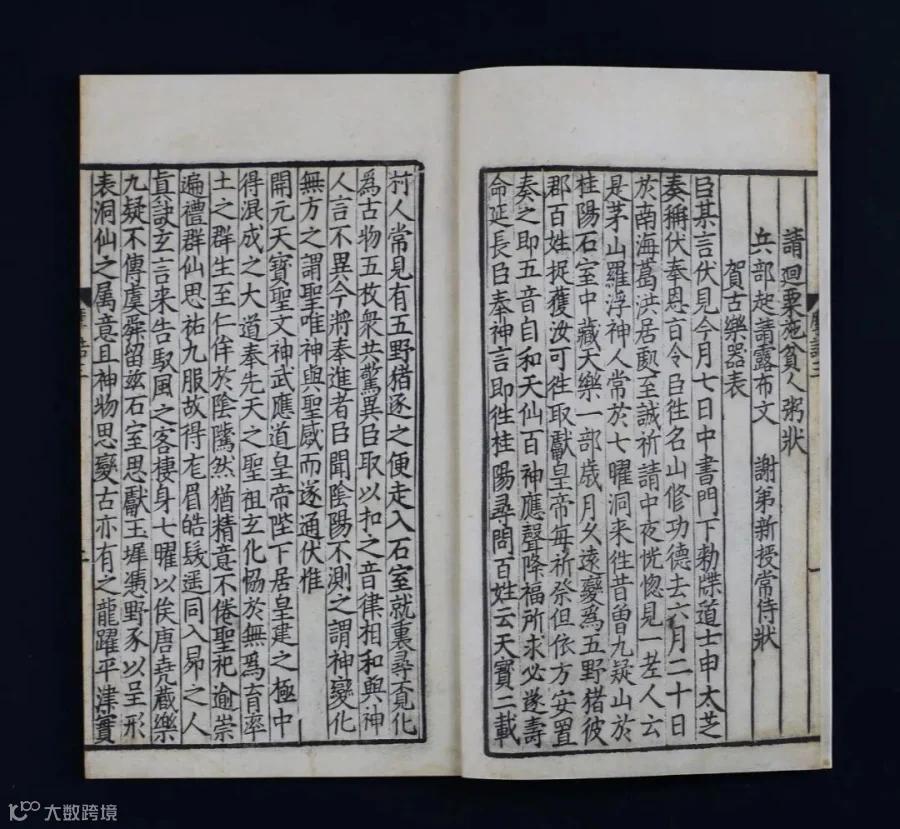 請迴粟施貧人粥狀
兵部起請露布文　謝弟新授常侍狀
賀古樂器表
臣某言伏見今月七日中書門下勑牒道士申太芝
奏稱伏奉恩旨令臣徃名山修功德去六月二十日
於南海葛洪居處至誠祈請中夜恍惚見一老人云
是茅山羅浮神人常於七曜洞来徃昔曽九疑山於
桂陽石室中藏天樂一部歳月久遠變爲五野猪彼
郡百姓捉獲汝可徃取獻皇帝每祈祭但依方安置
奏之即五音自和天仙百神應聲降福所求必遂壽
命延長臣奉神言即徃桂陽尋問百姓云天寳二載
村人常見有五野猪逐之便走入石室就裏尋覔化
爲古物五枚衆共驚異臣取以扣之音律相和與神
人言不異今將奉進者臣聞陰陽不測之謂神變化
無方之謂聖唯神與聖感而遂通伏惟
開元天寶聖文神武應道皇帝陛下居皇建之極中
得混成之大道奉先天之聖祖玄化恊於無爲育率
土之群生至仁侔於陰騭然猶精意不倦聖祀逾崇
遍禮群仙思祐九服故得厖眉皓髮遥同入昴之人
真訣玄言来告馭風之客棲身七曜以俟唐堯藏樂
九疑不傳虞舜留兹石室思獻王墀憑野豕以呈形
表洞仙之属意且神物思變古亦有之龍躍平津實